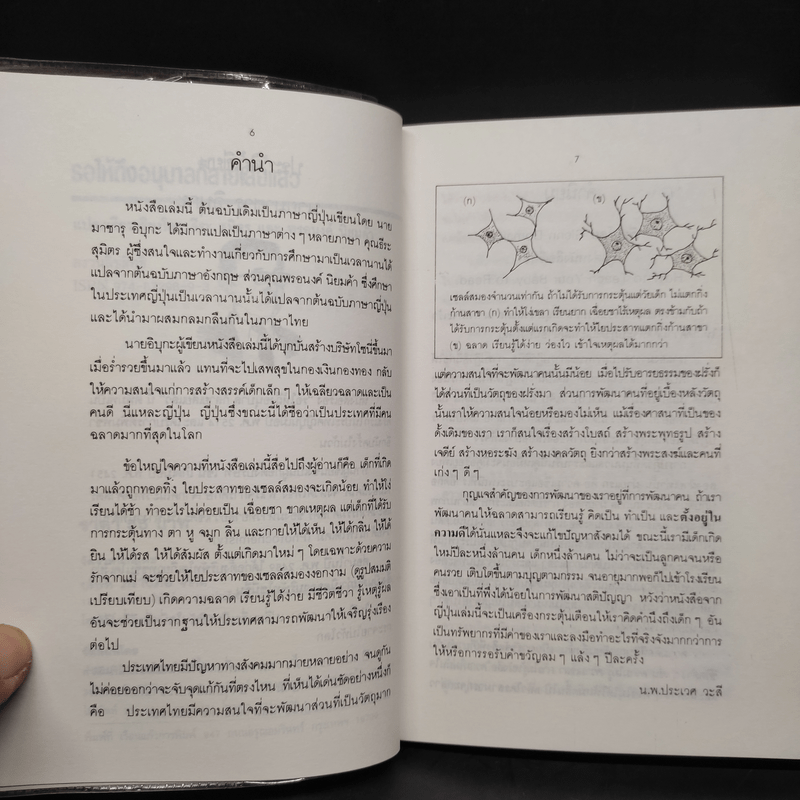 6
คำนำ
หนังสือเล่มนี้ ต้นฉบับเดิมเป็นภาษาญี่ปุ่นเขียนโดย นาย
มาซารุ อิบุกะ ได้มีการแปลเป็นภาษาต่าง ๆ หลายภาษา คุณธีระ
สุมิตร ผู้ซึ่งสนใจและทำงานเกี่ยวกับการศึกษามาเป็นเวลานานได้
แปลจากต้นฉบับภาษาอังกฤษ ส่วนคุณพรอนงค์ นิยมค้า ซึ่งศึกษา
ในประเทศญี่ปุ่นเป็นเวลานานนั้นได้แปลจากต้นฉบับภาษาญี่ปุ่น
และได้นำมาผสมกลมกลืนกันในภาษาไทย
นายอิบุกะผู้เขียนหนังสือเล่มนี้ได้บุกบั่นสร้างบริษัทโซนี่ขึ้นมา
เมื่อร่ำรวยขึ้นมาแล้ว แทนที่จะไปเสพสุขในกองเงินกองทอง กลับ
ให้ความสนใจแก่การสร้างสรรค์เด็กเล็ก ๆ ให้เฉลียวฉลาดและเป็น
คนดี นี่แหละญี่ปุ่น ญี่ปุ่นซึ่งขณะนี้ได้ชื่อว่าเป็นประเทศที่มีคน
ฉลาดมากที่สุดในโลก
ข้อใหญ่ใจความที่หนังสือเล่มนี้สื่อไปถึงผู้อ่านก็คือ เด็กที่เกิด
มาแล้วถูกทอดทิ้ง ใยประสาทของเซลล์สมองจะเกิดน้อย ทำให้โง่
เรียนได้ช้า ทำอะไรไม่ค่อยเป็น เฉื่อยชา ขาดเหตุผล แต่เด็กที่ได้รับ
การกระตุ้นทาง ตา หู จมูก ลิ้น และกายให้ได้เห็น ให้ได้กลิ่น ให้ได้
ยิน ให้ได้รส ให้ได้สัมผัส ตั้งแต่เกิดมาใหม่ ๆ โดยเฉพาะด้วยความ
รักจากแม่ จะช่วยให้ใยประสาทของเซลล์สมองงอกงาม (ดูรูปสมมติ
เปรียบเทียบ) เกิดความฉลาด เรียนรู้ได้ง่าย มีชีวิตชีวา รู้เหตุรู้ผล
อันจะช่วยเป็นรากฐานให้ประเทศสามารถพัฒนาให้เจริญรุ่งเรือง
ต่อไป
ประเทศไทยมีปัญหาทางสังคมมากมายหลายอย่าง จนดูกัน
ไม่ค่อยออกว่าจะจับจุดแก้กันที่ตรงไหน ที่เห็นได้เด่นชัดอย่างหนึ่งก็
คือ ประเทศไทยมีความสนใจที่จะพัฒนาส่วนที่เป็นวัตถุมาก
7
(ก) (ข)
เซลล์สมองจำนวนเท่ากัน ถ้าไม่ได้รับการกระตุ้นแต่วัยเด็ก ไม่แตกกิ่ง
ก้านสาขา (ก) ทำให้โง่เขลา เรียนยาก เฉื่อยชาไร้เหตุผล ตรงข้ามกับถ้า
ได้รับการกระตุ้นตั้งแต่แรกเกิดจะทำให้ใยประสาทแตกกิ่งก้านสาขา
(ข) ฉลาด เรียนรู้ได้ง่าย ว่องไว เข้าใจเหตุผลได้มากกว่า
แต่ความสนใจที่จะพัฒนาคนนั้นมีน้อย เมื่อไปรับอารยธรรมของฝรั่งก็
ได้ส่วนที่เป็นวัตถุของฝรั่งมา ส่วนการพัฒนาคนที่อยู่เบื้องหลังวัตถุ
นั้นเราให้ความสนใจน้อยหรือมองไม่เห็น แม้เรื่องศาสนาที่เป็นของ
ดั้งเดิมของเรา เราก็สนใจเรื่องสร้างโบสถ์ สร้างพระพุทธรูป สร้าง
เจดีย์ สร้างหอระฆัง สร้างมงคลวัตถุ ยิ่งกว่าสร้างพระสงฆ์และคนที่
เก่ง ๆ ดี ๆ
กุญแจสำคัญของการพัฒนาของเราอยู่ที่การพัฒนาคน ถ้าเรา
พัฒนาคนให้ฉลาดสามารถเรียนรู้ คิดเป็น ทำเป็น และตั้งอยู่ใน
ความดีได้นั่นแหละจึงจะแก้ไขปัญหาสังคมได้ ขณะนี้เรามีเด็กเกิด
ใหม่ปีละหนึ่งล้านคน เด็กหนึ่งล้านคน ไม่ว่าจะเป็นลูกคนจนหรือ
คนรวย เติบโตขึ้นตามบุญตามกรรม จนอายุมากพอก็ไปเข้าโรงเรียน
ซึ่งเอาเป็นที่พึ่งได้น้อยในการพัฒนาสติปัญญา หวังว่าหนังสือจาก
ญี่ปุ่นเล่มนี้จะเป็นเครื่องกระตุ้นเตือนให้เราคิดคำนึงถึงเด็ก ๆ อัน
เป็นทรัพยากรที่มีค่าของเราและลงมือทำอะไรที่จริงจังมากกว่าการ
ให้หรือการรอรับคำขวัญลม ๆ แล้ง ๆ ปีละครั้ง
น.พ.ประเวศ วะสี